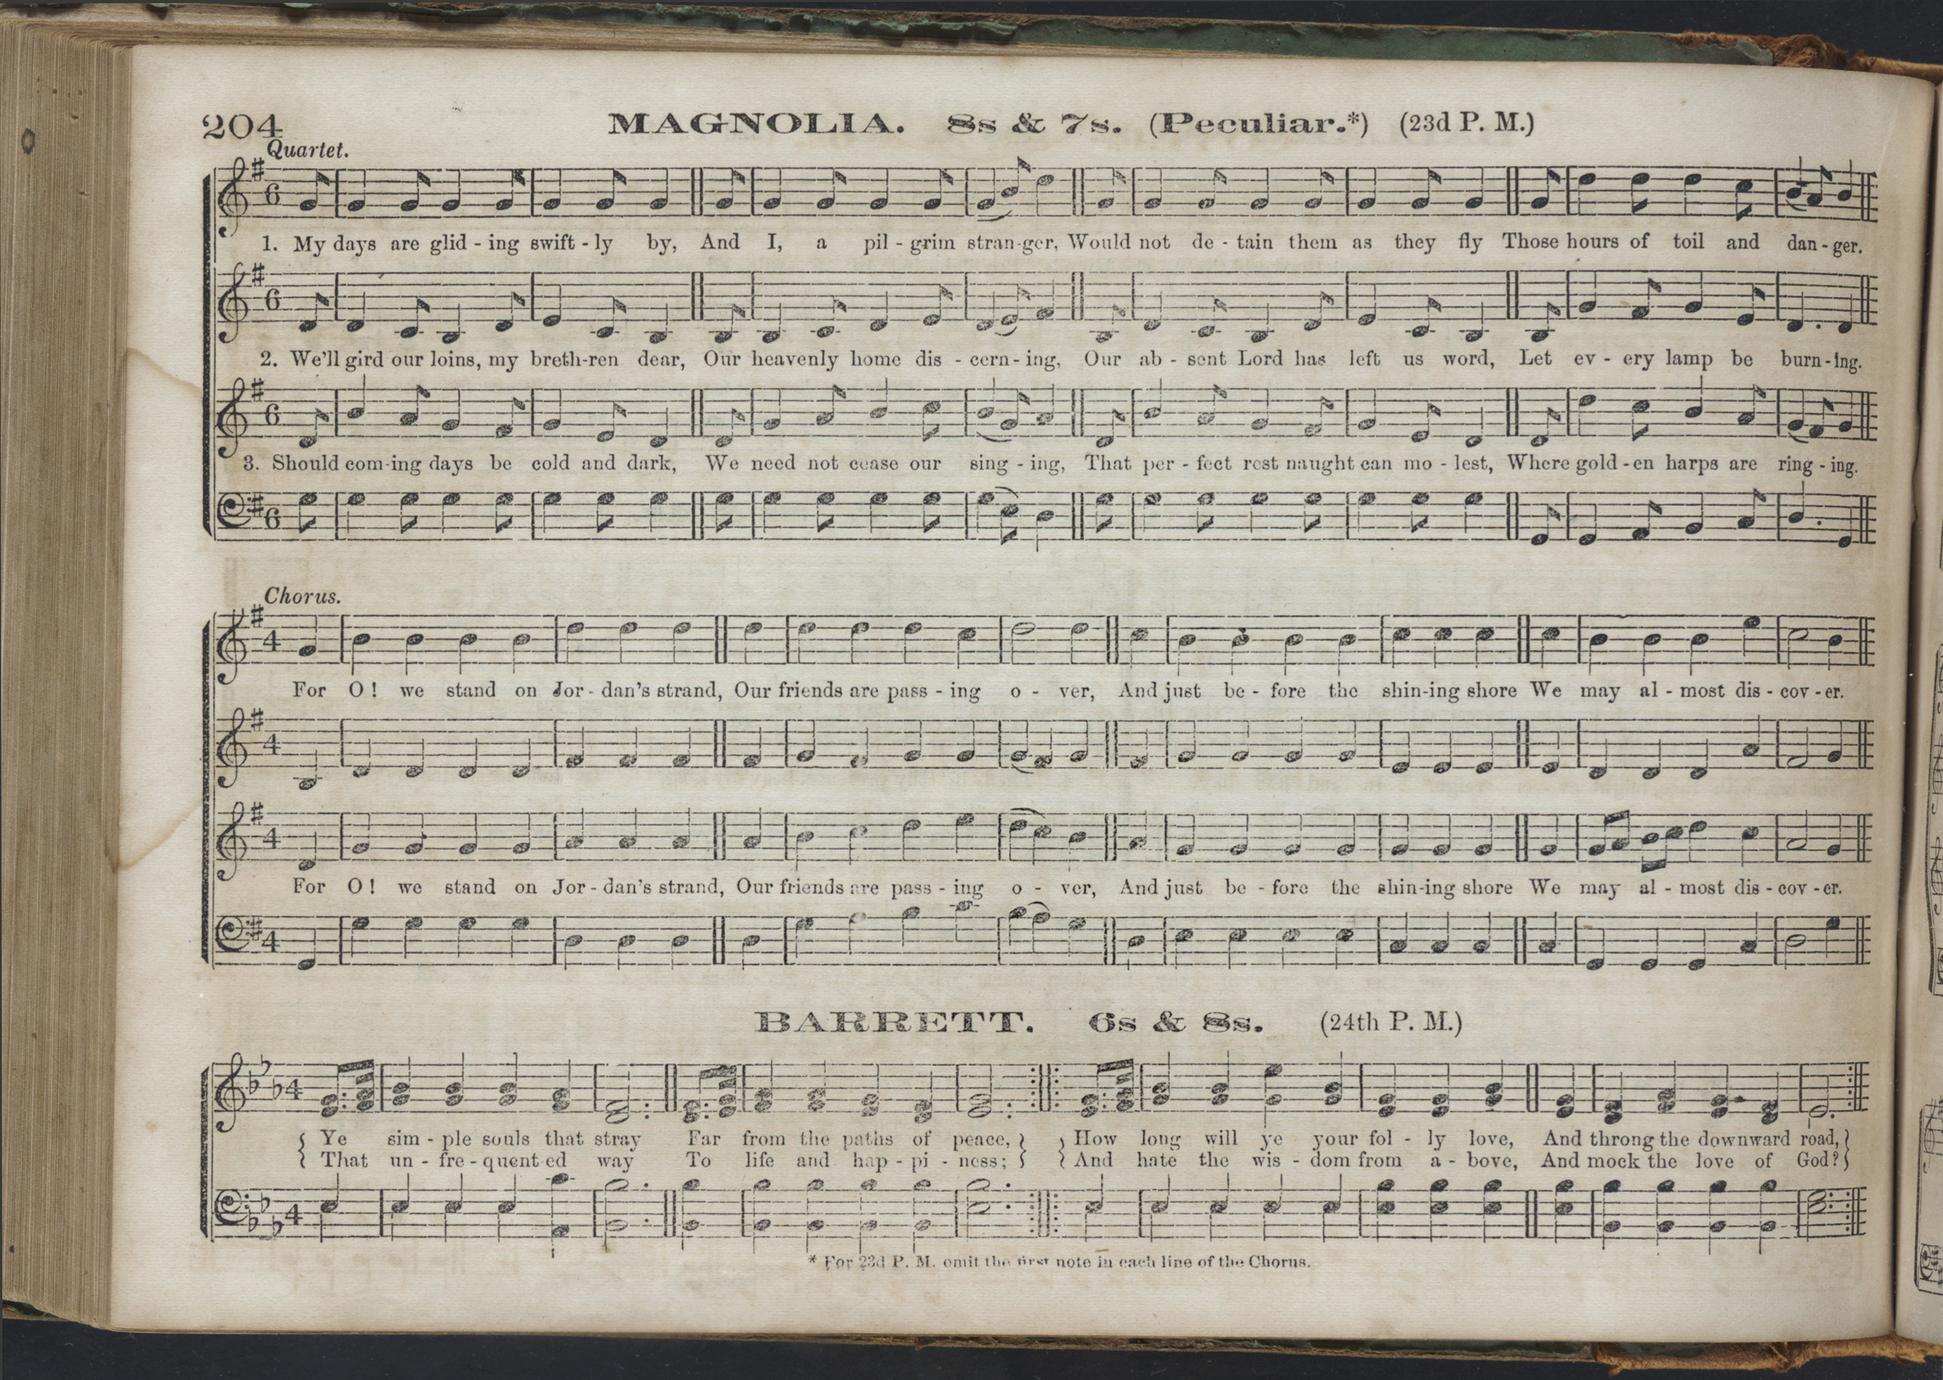 204
MAGNOLIA. 8s & 7s. (Peculiar.*) (23d P. M.)
Quartet.
6
1. My days are glid - ing swift - ly by, And I, a pil - grim stran-ger, Would not de - tain them as they fly Those hours of toil and dan - ger.
6
2. We'll gird our loins, my breth-ren dear, Our heavenly home dis - cern - ing, Our ab - sent Lord has left us word, Let ev - ery lamp be burn - ing.
6
3. Should com-ing days be cold and dark, We need not cease our sing - ing, That per - fect rest naught can mo - lest, Where gold - en harps are ring - ing.
6
Chorus.
4
For O! we stand on Jor - dan's strand, Our friends are pass - ing o - ver, And just be - fore the shin-ing shore We may al - most dis - cov - er.
4
4
For O! we stand on Jor - dan's strand, Our friends are pass - ing o - ver, And just be - fore the shin-ing shore We may al - most dis - cov - er.
4
BARRETT. 6s & 8s. (24th P. M.)
4
Ye sim - ple souls that stray Far from the paths of peace, How long will ye your fol - ly love, And throng the downward road,
That un - fre - quent-ed way To life and hap - pi - ness; And hate the wis - dom from a - bove, And mock the love of God?
4
* For 23d P. M. omit the first note in each line of the Chorus.